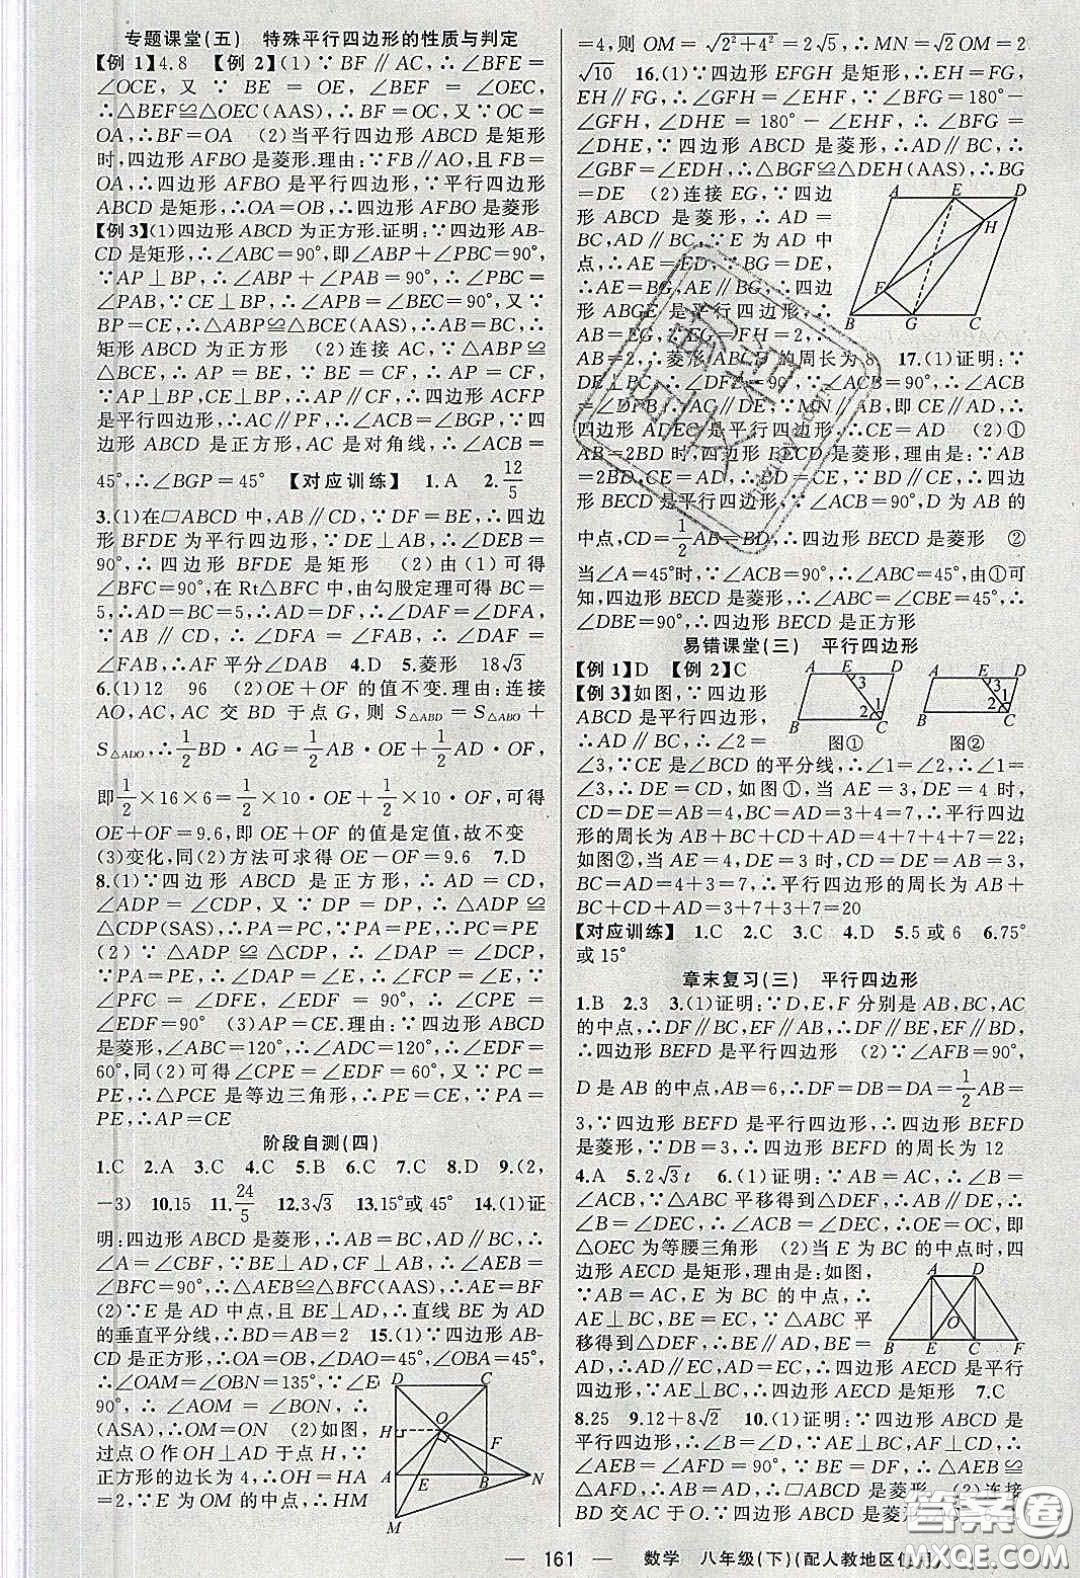 专题课堂(五) 特殊平行四边形的性质与判定
【例1】4.8 【例2】(1)∵BF∥AC,∴∠BFE=
∠OCE,又∵BE=OE,∠BEF=∠OEC,
∴△BEF≌△OEC(AAS),∴BF=OC,又∵OC=
OA,∴BF=OA (2)当平行四边形ABCD是矩形
时,四边形AFBO是菱形.理由:∵FB∥AO,且FB=
OA,∴四边形AFBO是平行四边形,∵平行四边形
ABCD是矩形,∴OA=OB,∴四边形AFBO是菱形
【例3】(1)四边形ABCD为正方形.证明:∵四边形AB-
CD是矩形,∴∠ABC=90°,即∠ABP+∠PBC=90°,
∵AP⊥BP,∴∠ABP+∠PAB=90°,∴∠PBC=
∠PAB,∵CE⊥BP,∴∠APB=∠BEC=90°,又∵
BP=CE,∴△ABP≌△BCE(AAS),∴AB=BC,∴
矩形ABCD为正方形 (2)连接AC,∵△ABP≌
△BCE,∴AP=BE,∵BE=CF,∴AP=CF,∵
AP⊥BP,CE⊥BP,∴AP∥CF,∴四边形ACFP
是平行四边形,∴AC∥PF,∴∠ACB=∠BGP,∵四
边形ABCD是正方形,AC是对角线,∴∠ACB=
45°,∴∠BGP=45° 【对应训练】 1.A 2.12/5
3.(1)在▱ABCD中,AB∥CD,∵DF=BE,∴四边
形BFDE为平行四边形,∵DE⊥AB,∴∠DEB=
90°,∴四边形BFDE是矩形 (2)由(1)可得
∠BFC=90°,在Rt△BFC中,由勾股定理可得BC=
5,∴AD=BC=5,∴AD=DF,∴∠DAF=∠DFA,
∵AB∥CD,∴∠DFA=∠FAB,∴∠DAF=
∠FAB,∴AF平分∠DAB 4.D 5.菱形 18√3
6.(1)12 96 (2)OE+OF的值不变.理由:连接
AO,AC,AC交BD于点G,则S△ABD=S△ABO+
S△ADO,∴1/2BD·AG=1/2AB·OE+1/2AD·OF,
即1/2×16×6=1/2×10·OE+1/2×10·OF,可得
OE+OF=9.6,即OE+OF的值是定值,故不变
(3)变化,同(2)方法可求得OE-OF=9.6 7.D
8.(1)∵四边形ABCD是正方形,∴AD=CD,
∠ADP=∠CDP,又∵DP=DP,∴△ADP≌
△CDP(SAS),∴PA=PC,∵PA=PE,∴PC=PE
(2)∵△ADP≌△CDP,∴∠DAP=∠DCP,
∵PA=PE,∴∠DAP=∠E,∴∠DCP=∠E,∵
∠PFC=∠DFE,∴∠CPE=
∠EDF=90° (3)AP=CE.理由:∵四边形ABCD
是菱形,∠ABC=120°,∴∠ADC=120°,∴∠EDF=
60°,同(2)可得∠CPE=∠EDF=60°,又∵PC=
PE,∴△PCE是等边三角形,∴PE=CE,∵PA=
PE,∴AP=CE
阶段自测(四)
1.C 2.A 3.C 4.C 5.B 6.C 7.C 8.D 9.(2,
-3) 10.15 11.24/5 12.3√3 13.15°或45° 14.(1)证
明:四边形ABCD是菱形,∴AB=BC,AD∥BC,∴
∠A=∠CBF,∵BE⊥AD,CF⊥AB,∴∠AEB=
∠BFC=90°,∴△AEB≌△BFC(AAS),∴AE=BF
(2)∵E是AD中点,且BE⊥AD,∴直线BE为AD
的垂直平分线,∴BD=AB=2 15.(1)∵四边形AB-
CD是正方形,∴OA=OB,∠DAO=45°,∠OBA=45°,
∴∠OAM=∠OBN=135°,∵∠E
90°,∴∠AOM=∠BON,∴
(ASA),∴OM=ON (2)如图,
过点O作OH⊥AD于点H,∵
正方形的边长为4,∴OH=HA
=2,∵E为OM的中点,∴HM
D
C
H
O
F
A
E
B
N
M
=4,则OM=√2²+4²=2√5,∴MN=√2OM=2
√10 16.(1)∵四边形EFGH是矩形,∴EH=FG,
EH∥FG,∴∠GFH=∠EHF,∵∠BFG=180°-
∠GFH,∠DHE=180°-∠EHF,∴∠BFG=
∠DHE,∵四边形ABCD是菱形,∴AD∥BC,∴
∠GBF=∠EDH,∴△BGF≌△DEH(AAS),∴BG
=DE (2)连接EG,∵四边
形ABCD是菱形,∴AD=
BC,AD∥BC,∵E为AD中
点,∴AE=ED,∵BG=DE,
∴AE=BG,AE∥BG,∴四边
形ABGE是平行四边形,∴
AB=EG,∵EG=FH=2,∴
AB=2,∴菱形ABCD的周长为8 17.(1)证明:∵
DE⊥BC,∴∠DFB=90°,∵∠ACB=90°,∴∠ACB=
∠DFB,∴AC∥DE,∵MN∥AB,即CE∥AD,∴
四边形ADEC是平行四边形,∴CE=AD (2)①
AB=2BD时,四边形BECD是菱形,理由是:∵AB
=2BD,CE=AD,∴CE=BD,∵CE∥BD,∴四边
形BECD是平行四边形,∵∠ACB=90°,D为AB的
中点,CD=1/2AB=BD,∴四边形BECD是菱形 ②
当∠A=45°时,∵∠ACB=90°,∴∠ABC=45°,由①可
知,四边形BECD是菱形,∴∠ABC=∠CBE=45°,∴
∠DBE=90°,∴四边形BECD是正方形
A
E
D
H
F
B
G
C
易错课堂(三) 平行四边形
【例1】D 【例2】C
【例3】如图,∵四边形
ABCD是平行四边形,
∴AD∥BC,∴∠2=
∠3,∵CE是∠BCD的平分线,∴∠1=∠2,∴∠1=
∠3,∴DE=CD,如图①,当AE=3,DE=4时,
CD=DE=AB=4,BC=AD=3+4=7,∴平行四边
形的周长为AB+BC+CD+AD=4+7+4+7=22;
如图②,当AE=4,DE=3时,CD=DE=AB=3,
BC=AD=3+4=7,∴平行四边形的周长为AB+
BC+CD+AD=3+7+3+7=20
A E D
3
1
2
B C
图①
A E D
3
1
2
B C
图②
【对应训练】 1.C 2.C 3.C 4.D 5.5或6 6.75°
或15°
章末复习(三) 平行四边形
1.B 2.3 3.(1)证明:∵D,E,F分别是AB,BC,AC
的中点,∴DF∥BC,EF∥AB,∴DF∥BE,EF∥BD,
∴四边形BEFD是平行四边形 (2)∵∠AFB=90°,
D是AB的中点,AB=6,∴DF=DB=DA=1/2AB=
3,∵四边形BEFD是平行四边形,∴四边形BEFD
是菱形,∵DB=3,∴四边形BEFD的周长为12
4.A 5.2√3t 6.(1)证明:∵AB=AC,∴∠B=
∠ACB,∵△ABC平移得到△DEF,∴AB∥DE,∴
∠B=∠DEC,∴∠ACB=∠DEC,∴OE=OC,即
△OEC为等腰三角形 (2)当E为BC的中点时,四
边形AECD是矩形,理由是:如图,
∵AB=AC,E为BC的中点,∴
AE⊥BC,BE=EC,∵△ABC平
移得到△DEF,∴BE∥AD,BE=
AD,∴AD∥EC,AD=EC,∴四边形AECD是平行
四边形,∵AE⊥BC,∴四边形AECD是矩形 7.C
8.25 9.12+8√2 10.(1)证明:∵四边形ABCD是
平行四边形,∴∠A=∠C,∵DE⊥AB,DF⊥BC,∴
∠AED=∠CFD=90°,∵DE=DF,∴△AED≌
△CFD(AAS),∴AD=CD,∴▱ABCD是菱形 (2)连接
BD交AC于O.∵四边形ABCD是菱形,
A D
O
B E C F
— 161 — 数学 八年级(下)(配人教地区使用)
答案圈
MXQE.COM